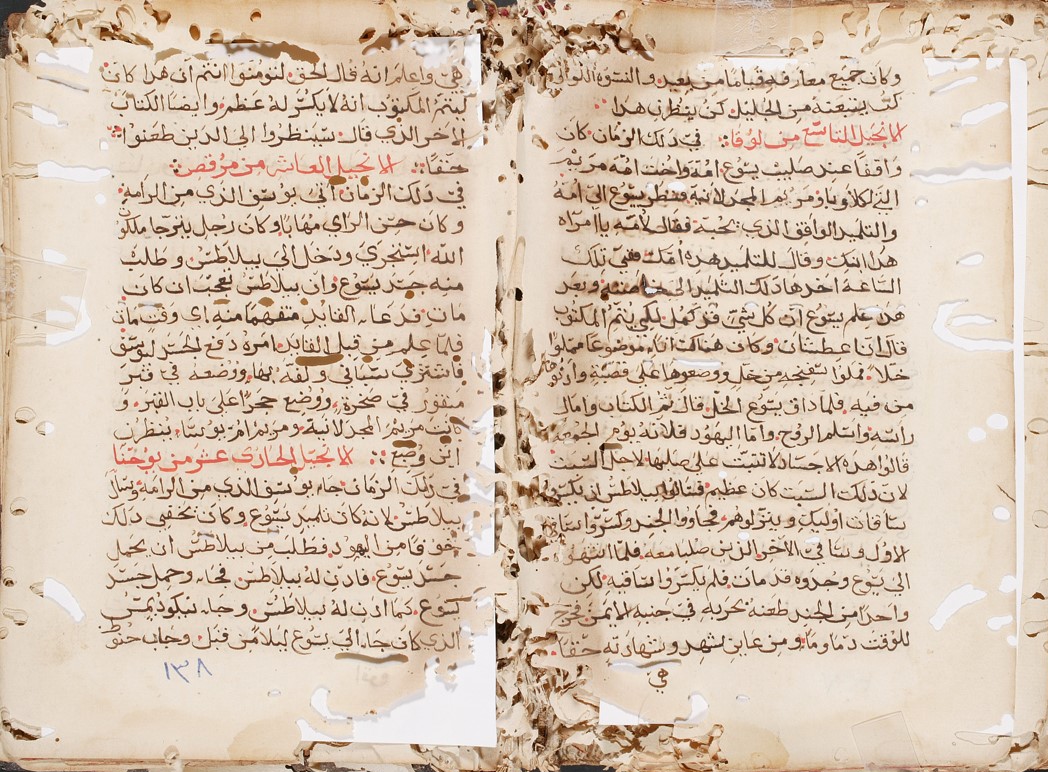 وكان جميع معارفه قياما من بعيد والنسوة اللواتي
كن يتبعنه من الجليل كن ينظرن هدا
الانجيل التاسع من لوقا في دلك الزمان كان
واقفا عند صليب يسوع امه واخت امه مريم
التي لكلاوبا ومريم المجدلانية فنظر يسوع الي امه
والتلميد الواقف الذي يحبه فقال لامه ياامراه
هدا ابنك وقال للتلميد هده امك فمن تلك
الساعة اخدها دلك التلميد الي وبعد
هدا علم يسوع ان كل شي قد كمل لكي يتم المكتوب
قال انا عطشان وكان هناك اناء موضوعا مملوا
خلا فملوا سفنجه من خل ووضعوها علي قصبة وادنوا
من فيه فلما داق يسوع الخل قال تم الكتاب وامال
راسه واسلم الروح واما اليهود فلانه يوم الجمعه
قالوا هده الاجساد لا تثبت علي صلبها لاجل السبت
لان دلك السبت كان عظيم فسالوا بيلاطس ان تكسر
ساقات اوليك وينزلوهم فجاووا الجند وكسروا ساقا
الاول وساقي الاخر الذين صلبا معه فلما انتهوا
الي يسوع وجدوه قد مات فلم يكسروا ساقيه لكن
واحدا من الجند طعنه بحربه في جنبه الايمن فخرج
للوقت دما وما ومن عاين شهد وشهادته حقا
هي
هي واعلم انه قال الحق لتومنوا انتم ان هدا كان
ليتم المكتوب انه لا يكسر له عظم وايضا الكتاب
الاخر الذي قال سينظروا الي الدين طعنوا
حقا الانجيل العاشر من مرقص
في دلك الزمان اتي يوسق الذي من الرامه
وكان حسن الراي مهابا وكان رجل يترجا ملكوت
الله استجري ودخل الي بيلاطس وطلب
منه جسد يسوع وان بيلاطس تعجب ان كان
مات فدعاء القايد متفهما منه اي وقت مات
فلما علم من قبل القايد امره دفع الجسد ليوسق
فاشتري سباني ولفه بها ووضعه في قبر
منقور في صخرة ووضع حجرا علي باب القبر و
كانت مريم المجدلانية ومريم ام يوسا ينظرن
اين وضع الانجيل الحادي عشر من يوحنا
في دلك الزمان جاء يوسق الدي من الرامه وسال
بيلاطس لانه كان تلميد يسوع وكان يختفي دلك
خوفا من اليهود فطلب من بيلاطس ان يحمل
جسد يسوع فادن له بيلاطس فجاء وحمل جسد
يسوع كما ادن له بيلاطس وجاء نيكوديمس
الذي كان جاء الي يسوع ليلا من قبل وجاب حنوط
١٣٨